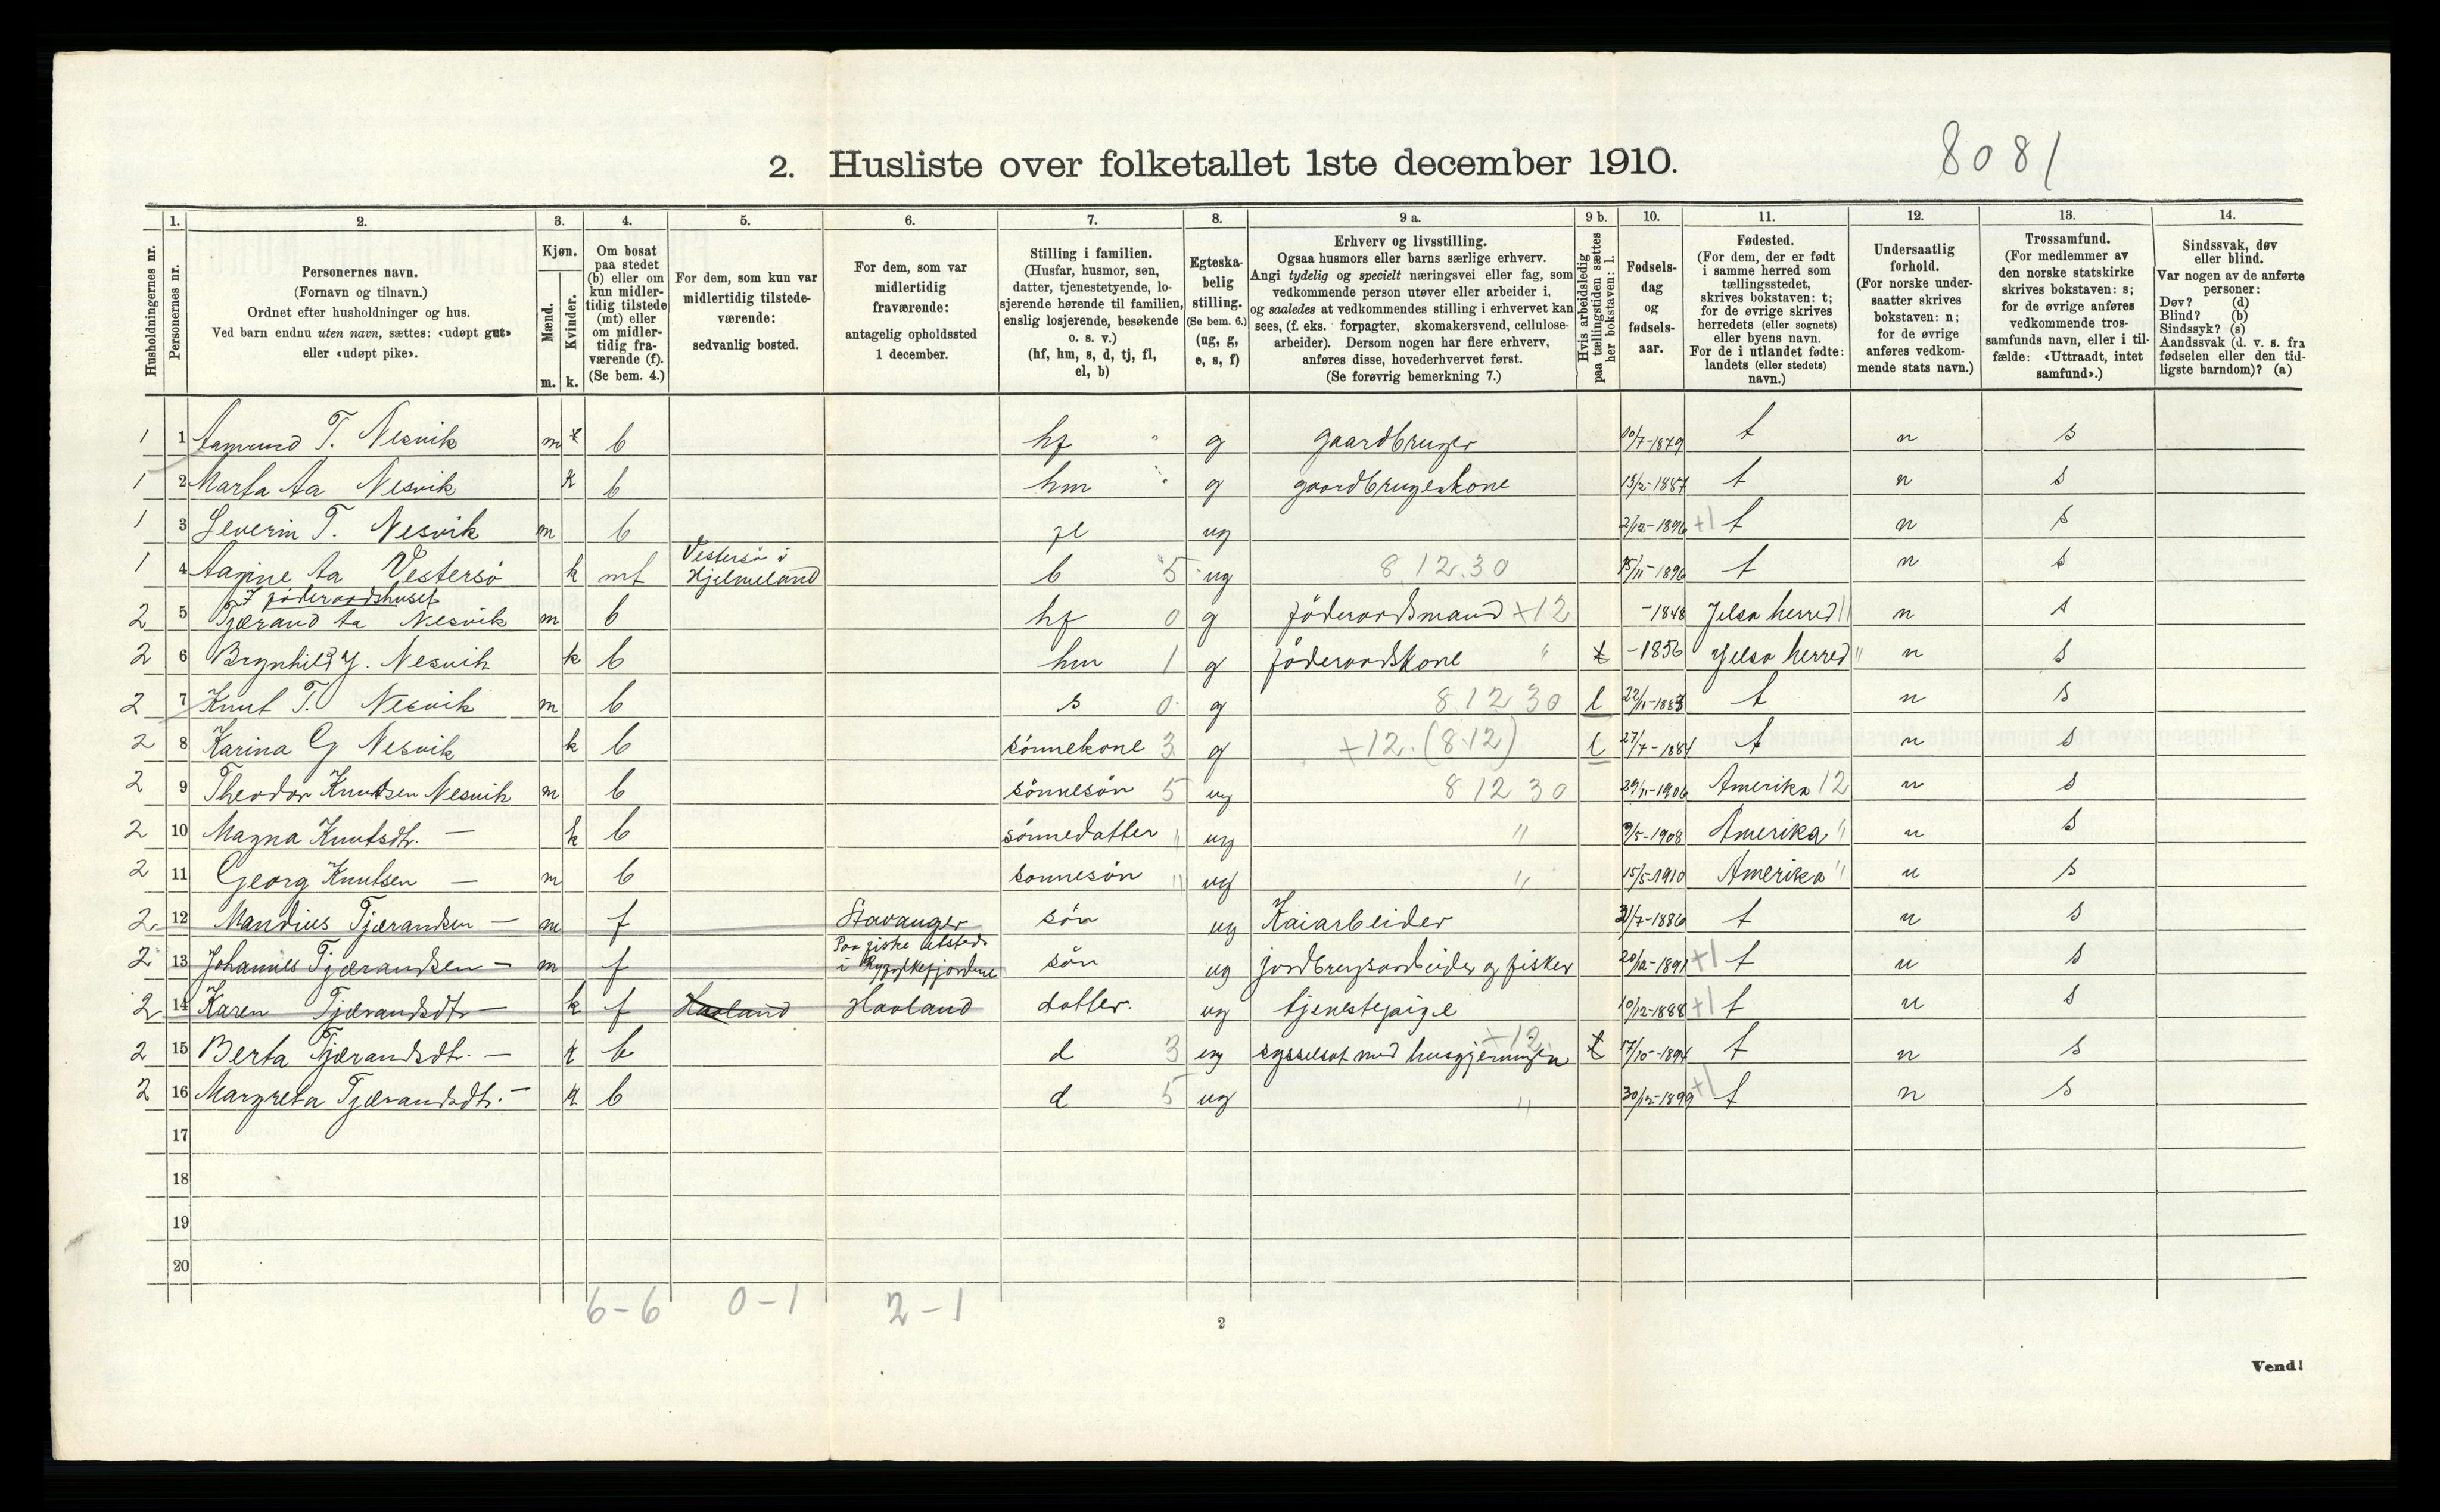 2. Husliste over folketallet 1ste december 1910.
8081
1. 2. 3. 4. 5. 6. 7. 8. 9 a. 9 b. 10. 11. 12. 13. 14.
Husholdningernes nr.
Personernes nr.
Personernes navn.
(Fornavn og tilnavn.)
Ordnet efter husholdninger og hus.
Ved barn endnu uten navn, sættes: «udøpt gut»
eller «udøpt pike».
Kjøn.
Mænd.
Kvinder.
m. k.
Om bosat
paa stedet
(b) eller om
kun midler-
tidig tilstede
(mt) eller
om midler-
tidig fra-
værende (f).
(Se bem. 4.)
For dem, som kun var
midlertidig tilstede-
værende:
sedvanlig bosted.
For dem, som var
midlertidig
fraværende:
antagelig opholdssted
1 december.
Stilling i familien.
(Husfar, husmor, søn,
datter, tjenestetyende, lo-
sjerende hørende til familien,
enslig losjerende, besøkende
o. s. v.)
(hf, hm, s, d, tj, fl,
el, b)
Egteska-
belig
stilling.
(Se bem. 6.)
(ug, g,
e, s, f)
Erhverv og livsstilling.
Ogsaa husmors eller barns særlige erhverv.
Angi tydelig og specielt næringsvei eller fag, som
vedkommende person utøver eller arbeider i,
og saaledes at vedkommendes stilling i erhvervet kan
sees, (f. eks. forpagter, skomakersvend, cellulose-
arbeider). Dersom nogen har flere erhverv,
anføres disse, hovederhvervet først.
(Se forøvrig bemerkning 7.)
Hvis arbeidsledig
paa tællingstiden sættes
her bokstaven: l.
Fødsels-
dag
og
fødsels-
aar.
Fødested.
(For dem, der er født
i samme herred som
tællingsstedet,
skrives bokstaven: t;
for de øvrige skrives
herredets (eller sognets)
eller byens navn.
For de i utlandet fødte:
landets (eller stedets)
navn.)
Undersaatlig
forhold.
(For norske under-
saatter skrives
bokstaven: n;
for de øvrige
anføres vedkom-
mende stats navn.)
Trossamfund.
(For medlemmer av
den norske statskirke
skrives bokstaven: s;
for de øvrige anføres
vedkommende tros-
samfunds navn, eller i til-
fælde: «Uttraadt, intet
samfund».)
Sindssvak, døv
eller blind.
Var nogen av de anførte
personer:
Døv? (d)
Blind? (b)
Sindssyk? (s)
Aandssvak (d. v. s. fra
fødselen eller den tid-
ligste barndom)? (a)
1 1 Aamund T. Nesvik m b hf g gaardbruger 10/7-1879 t n s
1 2 Marta Aa Nesvik k b hm g gaardbrugerkone 13/2-1887 t n s
1 3 Severin T. Nesvik m b fl ug 2/12-1896 +1 t n s
Vestersö i
1 4 Aagine Aa Vestersö k mt Hjelmeland b 5 ug 8.12.30 15/11-1896 t n s
I föderaadshuset
2 5 Tjærand Aa Nesvik m b hf 0 g föderaadsmand +12 -1848 Jelsa herred " n s
2 6 Brynhild J. Nesvik k b hm 1 g föderaadskone " -1856 Jelsa herred " n s
2 7 Knut T. Nesvik m b s 0 g 8 12 30 l 22/11-1883 t n s
2 8 Karina G Nesvik k b sönnekone 3 g +12. (8.12) l 27/7-1884 t n s
2 9 Theodor Knutsen Nesvik m b sönnesön 5 ug 8 12 30 29/11-1906 Amerika 12 n s
2 10 Magna Knutsdt. — k b sönnedatter " ug " 9/5-1908 Amerika " n s
2 11 Georg Knutsen — m b sonnesön " ug " 15/5-1910 Amerika " n s
2 12 Mandius Tjærandsen — m f Stavanger sön ug Kaiarbeider 31/7-1886 t n s
Paa fiske etsteds
2 13 Johannes Tjærandsen — m f i Ryfylkefjordene sön ug jordbrugsarbeider og fisker 20/12-1891 +1 t n s
2 14 Karen Tjærandsdt — k f Haaland Haaland datter. ug tjenestepige 10/12-1888 +1 t n s
+12
2 15 Berta Tjærandsdt. — k b d 3 ug sysselsat med husgjerningen 17/10-1894 t n s
2 16 Margreta Tjærandsdt. — k b d 5 ug " 30/12-1899 +1 t n s
17
18
19
20
6-6 0-1 2-1
2
Vend!